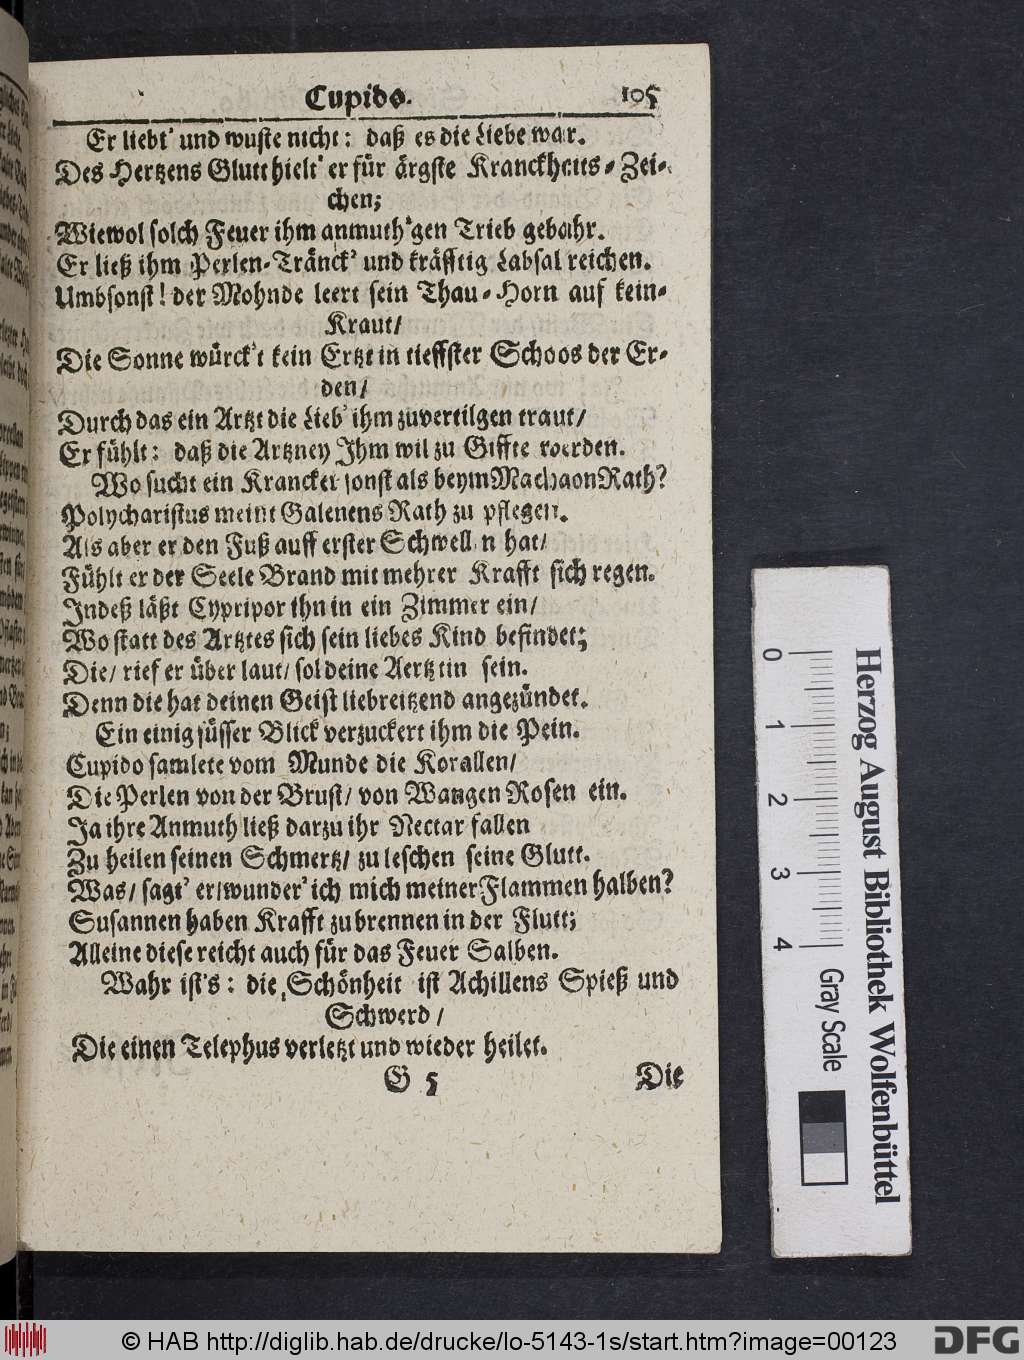 Cupido. 105
Er liebt' und wuste nicht: daß es die Liebe war.
Des Hertzens Glutt hielt' er für ärgste Kranckheits-Zei-
chen;
Wiewol solch Feuer ihm anmuth'gen Trieb gebahr.
Er ließ ihm Perlen-Tränck' und kräfftig Labsal reichen.
Umbsonst! der Mohnde leert sein Thau-Horn auf kein-
Kraut/
Die Sonne würck't kein Ertzt in tieffster Schoos der Er-
den/
Durch das ein Artzt die Lieb' ihm zuvertilgen traut/
Er fühlt: daß die Artzney Ihm wil zu Giffte werden.
Wo sucht ein Krancker sonst als beym Machaon Rath?
Polycharistus meint Galenens Rath zu pflegen.
Als aber er den Fuß auff erster Schwellen hat/
Fühlt er der Seele Brand mit mehrer Krafft sich regen.
Indeß läßt Cypripor ihn in ein Zimmer ein/
Wo statt des Artztes sich sein liebes Kind befindet;
Die/ rief er über laut/ sol deine Aertztin sein.
Denn die hat deinen Geist liebreitzend angezündet.
Ein einig süsser Blick verzuckert ihm die Pein.
Cupido samlete vom Munde die Korallen/
Die Perlen von der Brust/ von Wangen Rosen ein.
Ja ihre Anmuth ließ darzu ihr Nectar fallen
Zu heilen seinen Schmertz/ zu leschen seine Glutt.
Was/ sagt' er/ wunder' ich mich meiner Flammen halben?
Susannen haben Krafft zu brennen in der Flutt;
Alleine diese reicht auch für das Feuer Salben.
Wahr ist's: die Schönheit ist Achillens Spieß und
Schwerd/
Die einen Telephus verletzt und wieder heilet.
G 5 Die
Herzog August Bibliothek Wolfenbüttel
0 1 2 3 4 Gray Scale
© HAB http://diglib.hab.de/drucke/lo-5143-1s/start.htm?image=00123
DFG